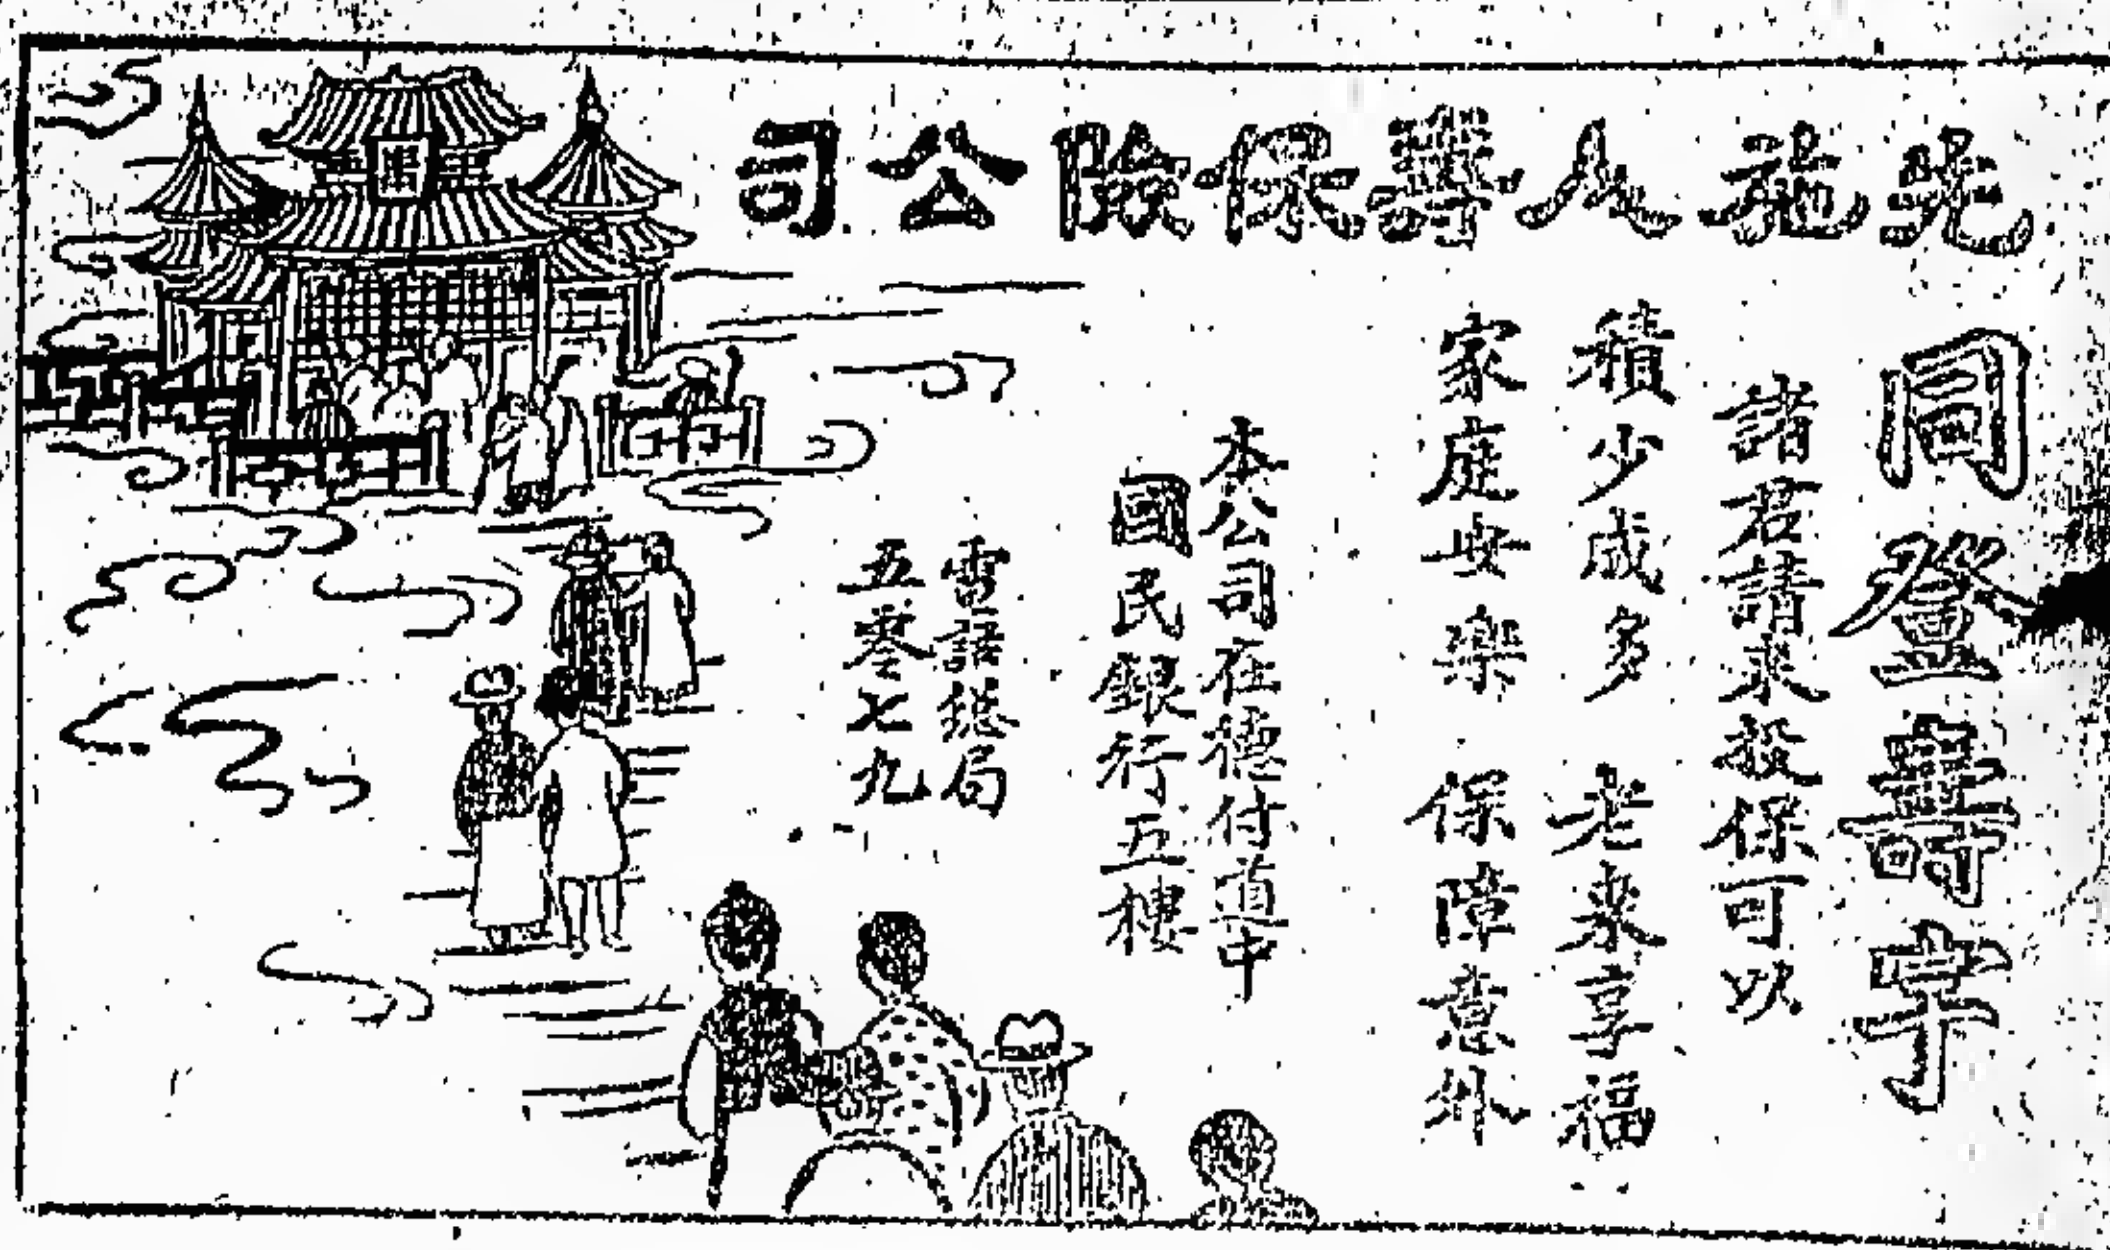 先施人壽保險公司
同登壽宇
諸君請來投保可以
積少成多 老來享福
家庭安樂 保障意外
本公司在德付道中
國民銀行五樓
電話總局
五零七九
壽